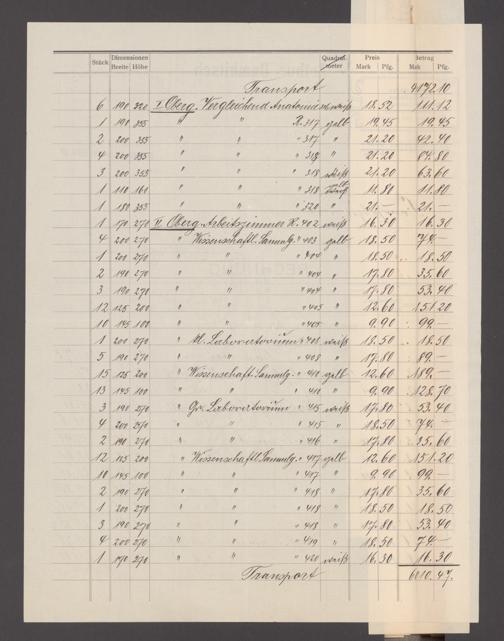 Stück Dimensionen Quadrat- Preis Betrag
Breite Höhe meter Mark Pfg. Mark Pfg.
Transport 4172.10
6 190 320 I. Oberg. Vergleichend Anatomie weiß 18.52 111.12
1 190 355 " " R. 317 gelb 19.45 19.45
2 200 355 " " " 317 " 21.20 42.40
4 200 355 " " " 318 " 21.20 84.80
3 200 355 " " " 318 weiß 21.20 63.60
1 110 161 " " " 318 11.80 11.80
1 188 355 " " " 320 " 21.— 21.—
1 170 270 II. Oberg. Arbeitszimmer R. 402 weiß 16.30 16.30
4 200 270 " Wissenschaftl. Sammlg. " 403 gelb 18.50 74.—
1 200 270 " " " 404 " 18.50 18.50
2 190 270 " " " 404 " 17.80 35.60
3 190 270 " " " 404 " 17.80 53.40
12 125 200 " " " 405 " 12.60 151.20
10 145 100 " " " 405 " 9.90 99.—
1 200 270 " Kl. Laboratorium " 408 weiß 18.50 18.50
5 190 270 " " " 408 " 17.80 89.—
15 125 200 " Wissenschaft. Sammlg. " 410 gelb 12.60 189.—
13 145 100 " " " 410 " 9.90 128.70
3 190 270 " Gr. Laboratorium " 415 weiß 17.80 53.40
4 200 270 " " " 415 " 18.50 74.—
2 190 270 " " " 416 " 17.80 35.60
12 125 200 " Wissenschaftl. Sammlg. " 417 gelb 12.60 151.20
10 145 100 " " " 417 " 9.90 99.—
2 190 270 " " " 418 " 17.80 35.60
1 200 270 " " " 418 " 18.50 18.50
3 190 270 " " " 418 " 17.80 53.40
4 200 270 " " " 419 " 18.50 74.—
1 170 270 " " " 420 weiß 16.30 16.30
Transport 6010.47.